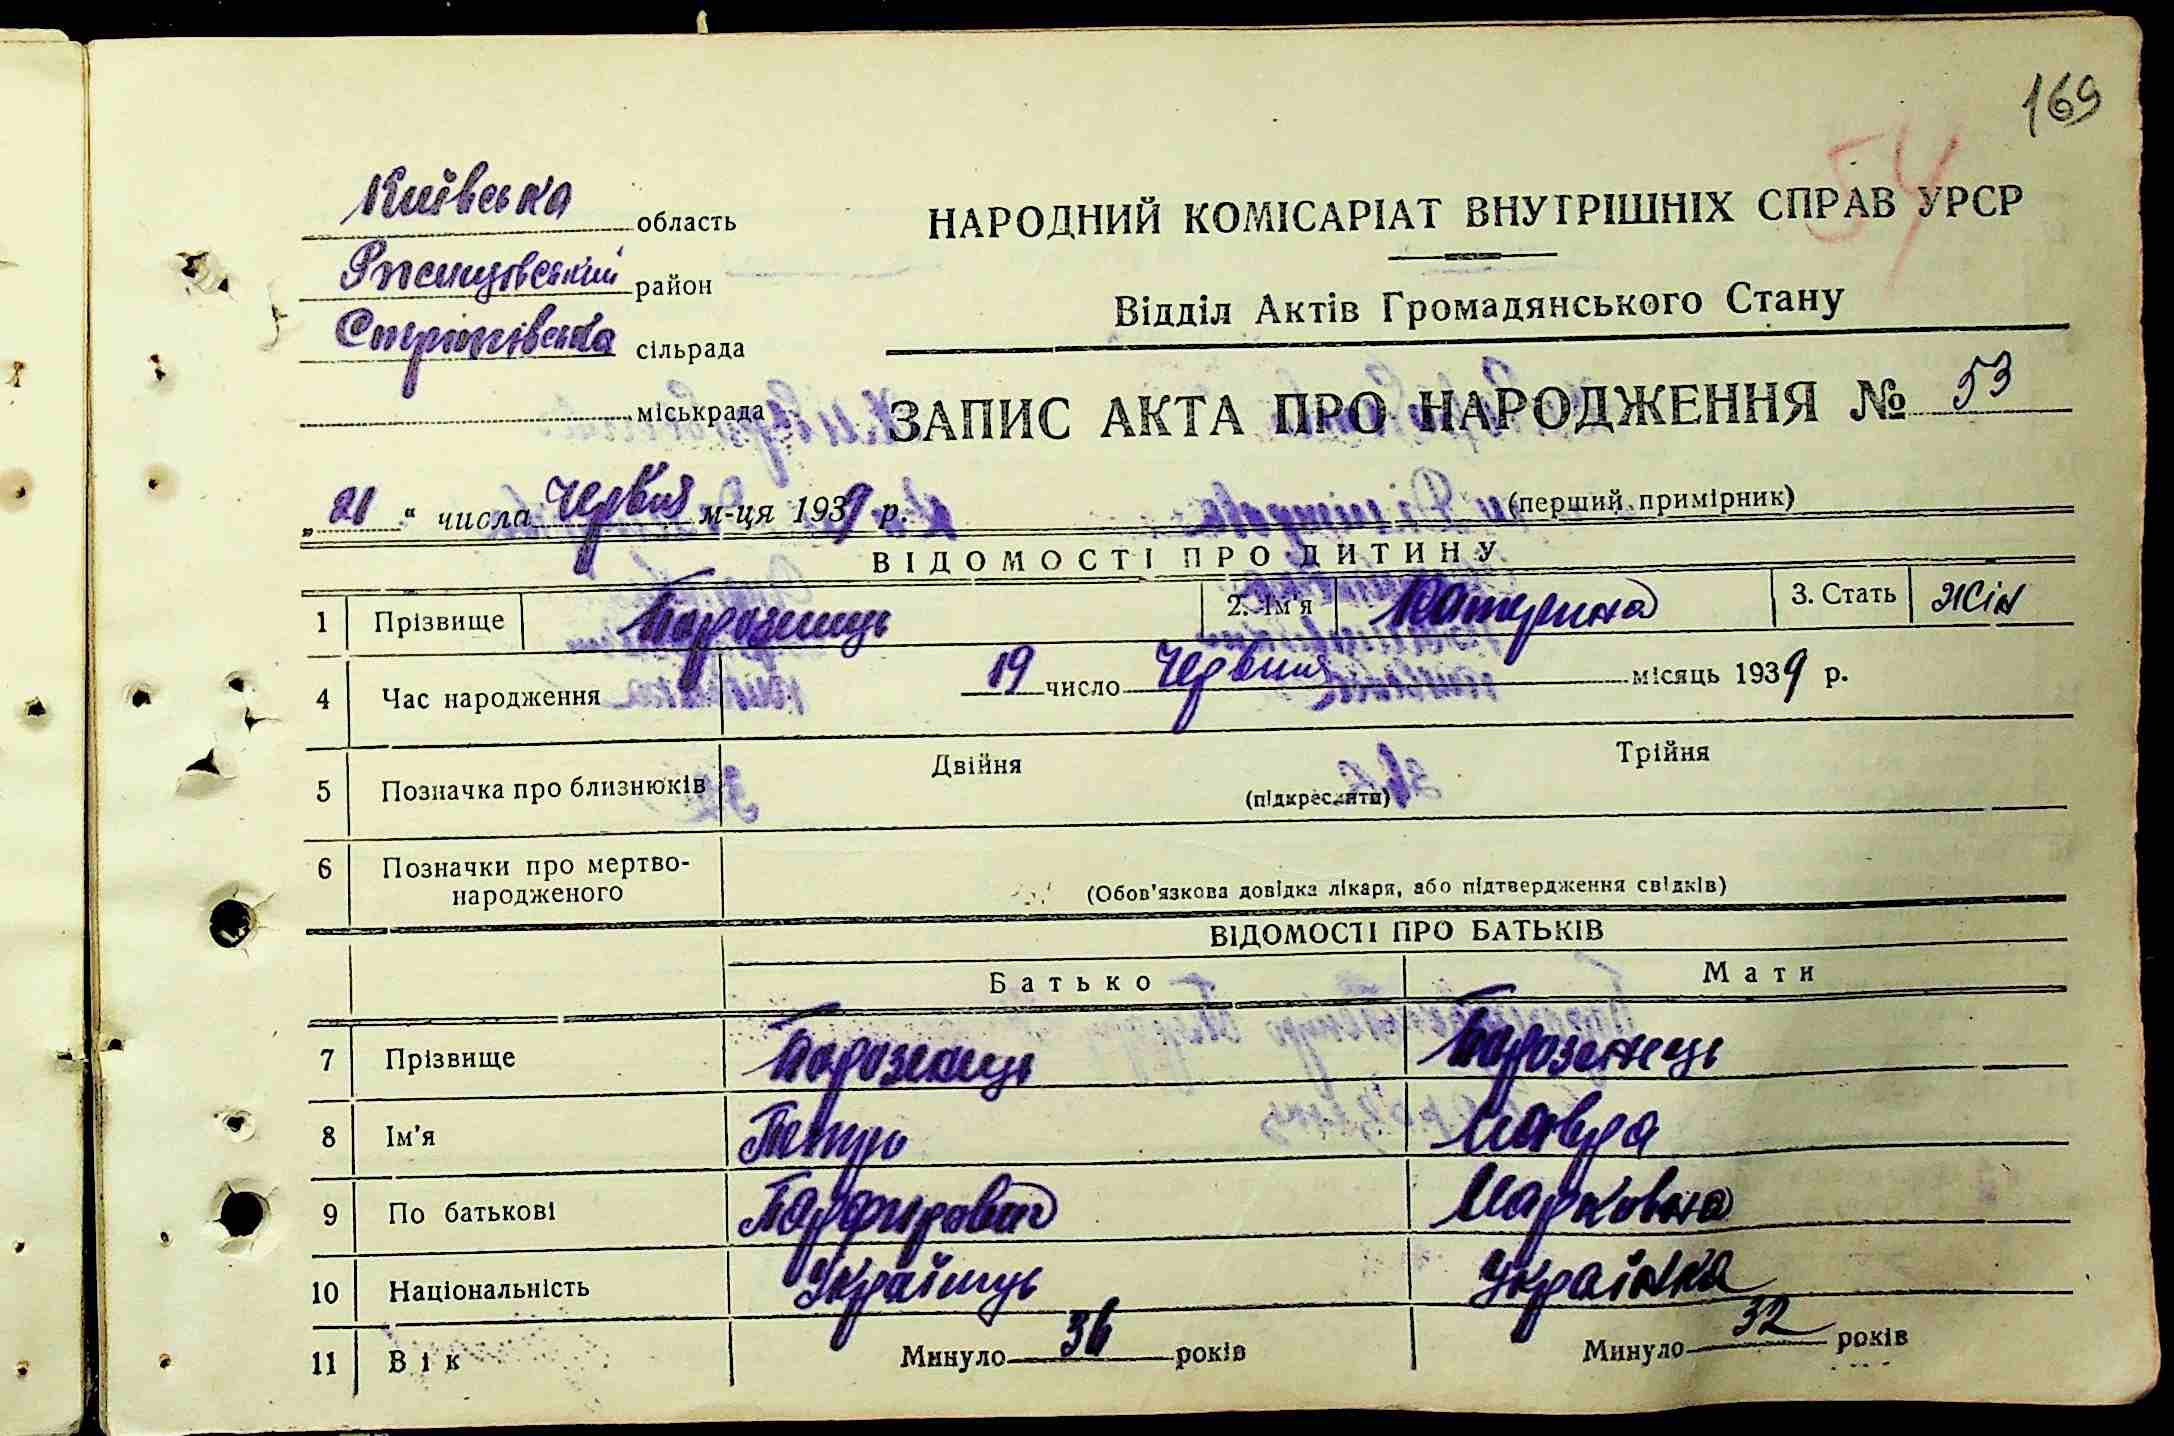 169
54
Київська область
Ржищівський район
Стрітівська сільрада
міськрада
НАРОДНИЙ КОМІСАРІАТ ВНУТРІШНІХ СПРАВ УРСР
Відділ Актів Громадянського Стану
ЗАПИС АКТА ПРО НАРОДЖЕННЯ № 53
„21“ числа Червня м-ця 1939 р. (перший примірник)
ВІДОМОСТІ ПРО ДИТИНУ
1 Прізвище 2. Ім'я Катерина 3. Стать жін
4 Час народження 19 число Червня місяць 1939 р.
5 Позначка про близнюків Двійня (підкреслити) Трійня
6 Позначки про мертво-
народженого (Обов'язкова довідка лікаря, або підтвердження свідків)
ВІДОМОСТІ ПРО БАТЬКІВ
Батько Мати
7 Прізвище
8 Ім'я Петро Мавра
9 По батькові Парфирович Марковна
10 Національність Українець Українка
11 Вік Минуло 36 років Минуло 32 років